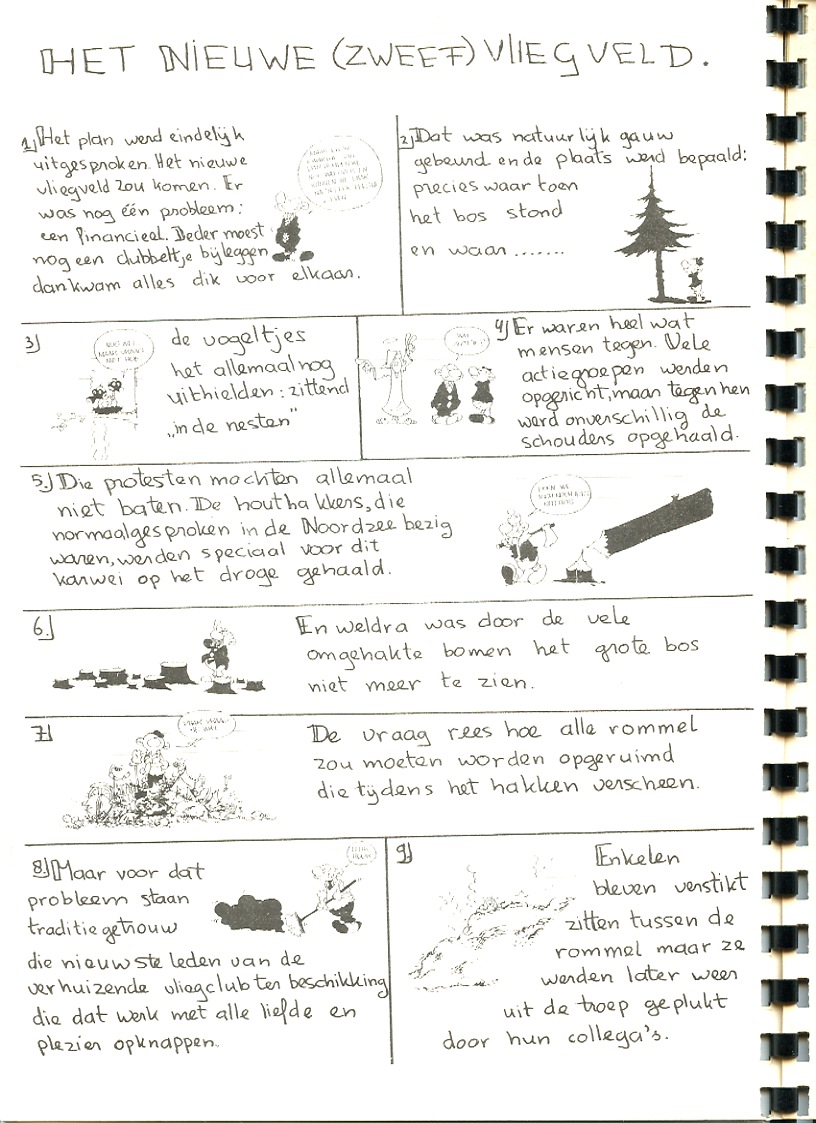 HET NIEUWE (ZWEEF) VLIEGVELD.
1) Het plan werd eindelijk
uitgesproken. Het nieuwe
vliegveld zou komen. Er
was nog één probleem:
een financieel. Ieder moest
nog een dubbeltje bijleggen
dan kwam alles dik voor elkaar.
2) Dat was natuurlijk gauw
gebeurd en de plaats werd bepaald:
precies waar toen
het bos stond
en waar.......
3)
de vogeltjes
het allemaal nog
uithielden: zittend
„in de nesten"
4) Er waren heel wat
mensen tegen. Vele
actiegroepen werden
opgericht, maar tegen hen
werd onverschillig de
schouders opgehaald.
5.) Die protesten mochten allemaal
niet baten. De houthakkers, die
normaalgesproken in de Noordzee bezig
waren, werden speciaal voor dit
karwei op het droge gehaald.
6.)
En weldra was door de vele
omgehakte bomen het grote bos
niet meer te zien.
7)
De vraag rees hoe alle rommel
zou moeten worden opgeruimd
die tijdens het hakken verscheen.
8) Maar voor dat
probleem staan
traditiegetrouw
die nieuwste leden van de
verhuizende vliegclub ter beschikking
die dat werk met alle liefde en
plezier opknappen.
9)
Enkelen
bleven verstikt
zitten tussen de
rommel maar ze
werden later weer
uit de troep geplukt
door hun collega's.